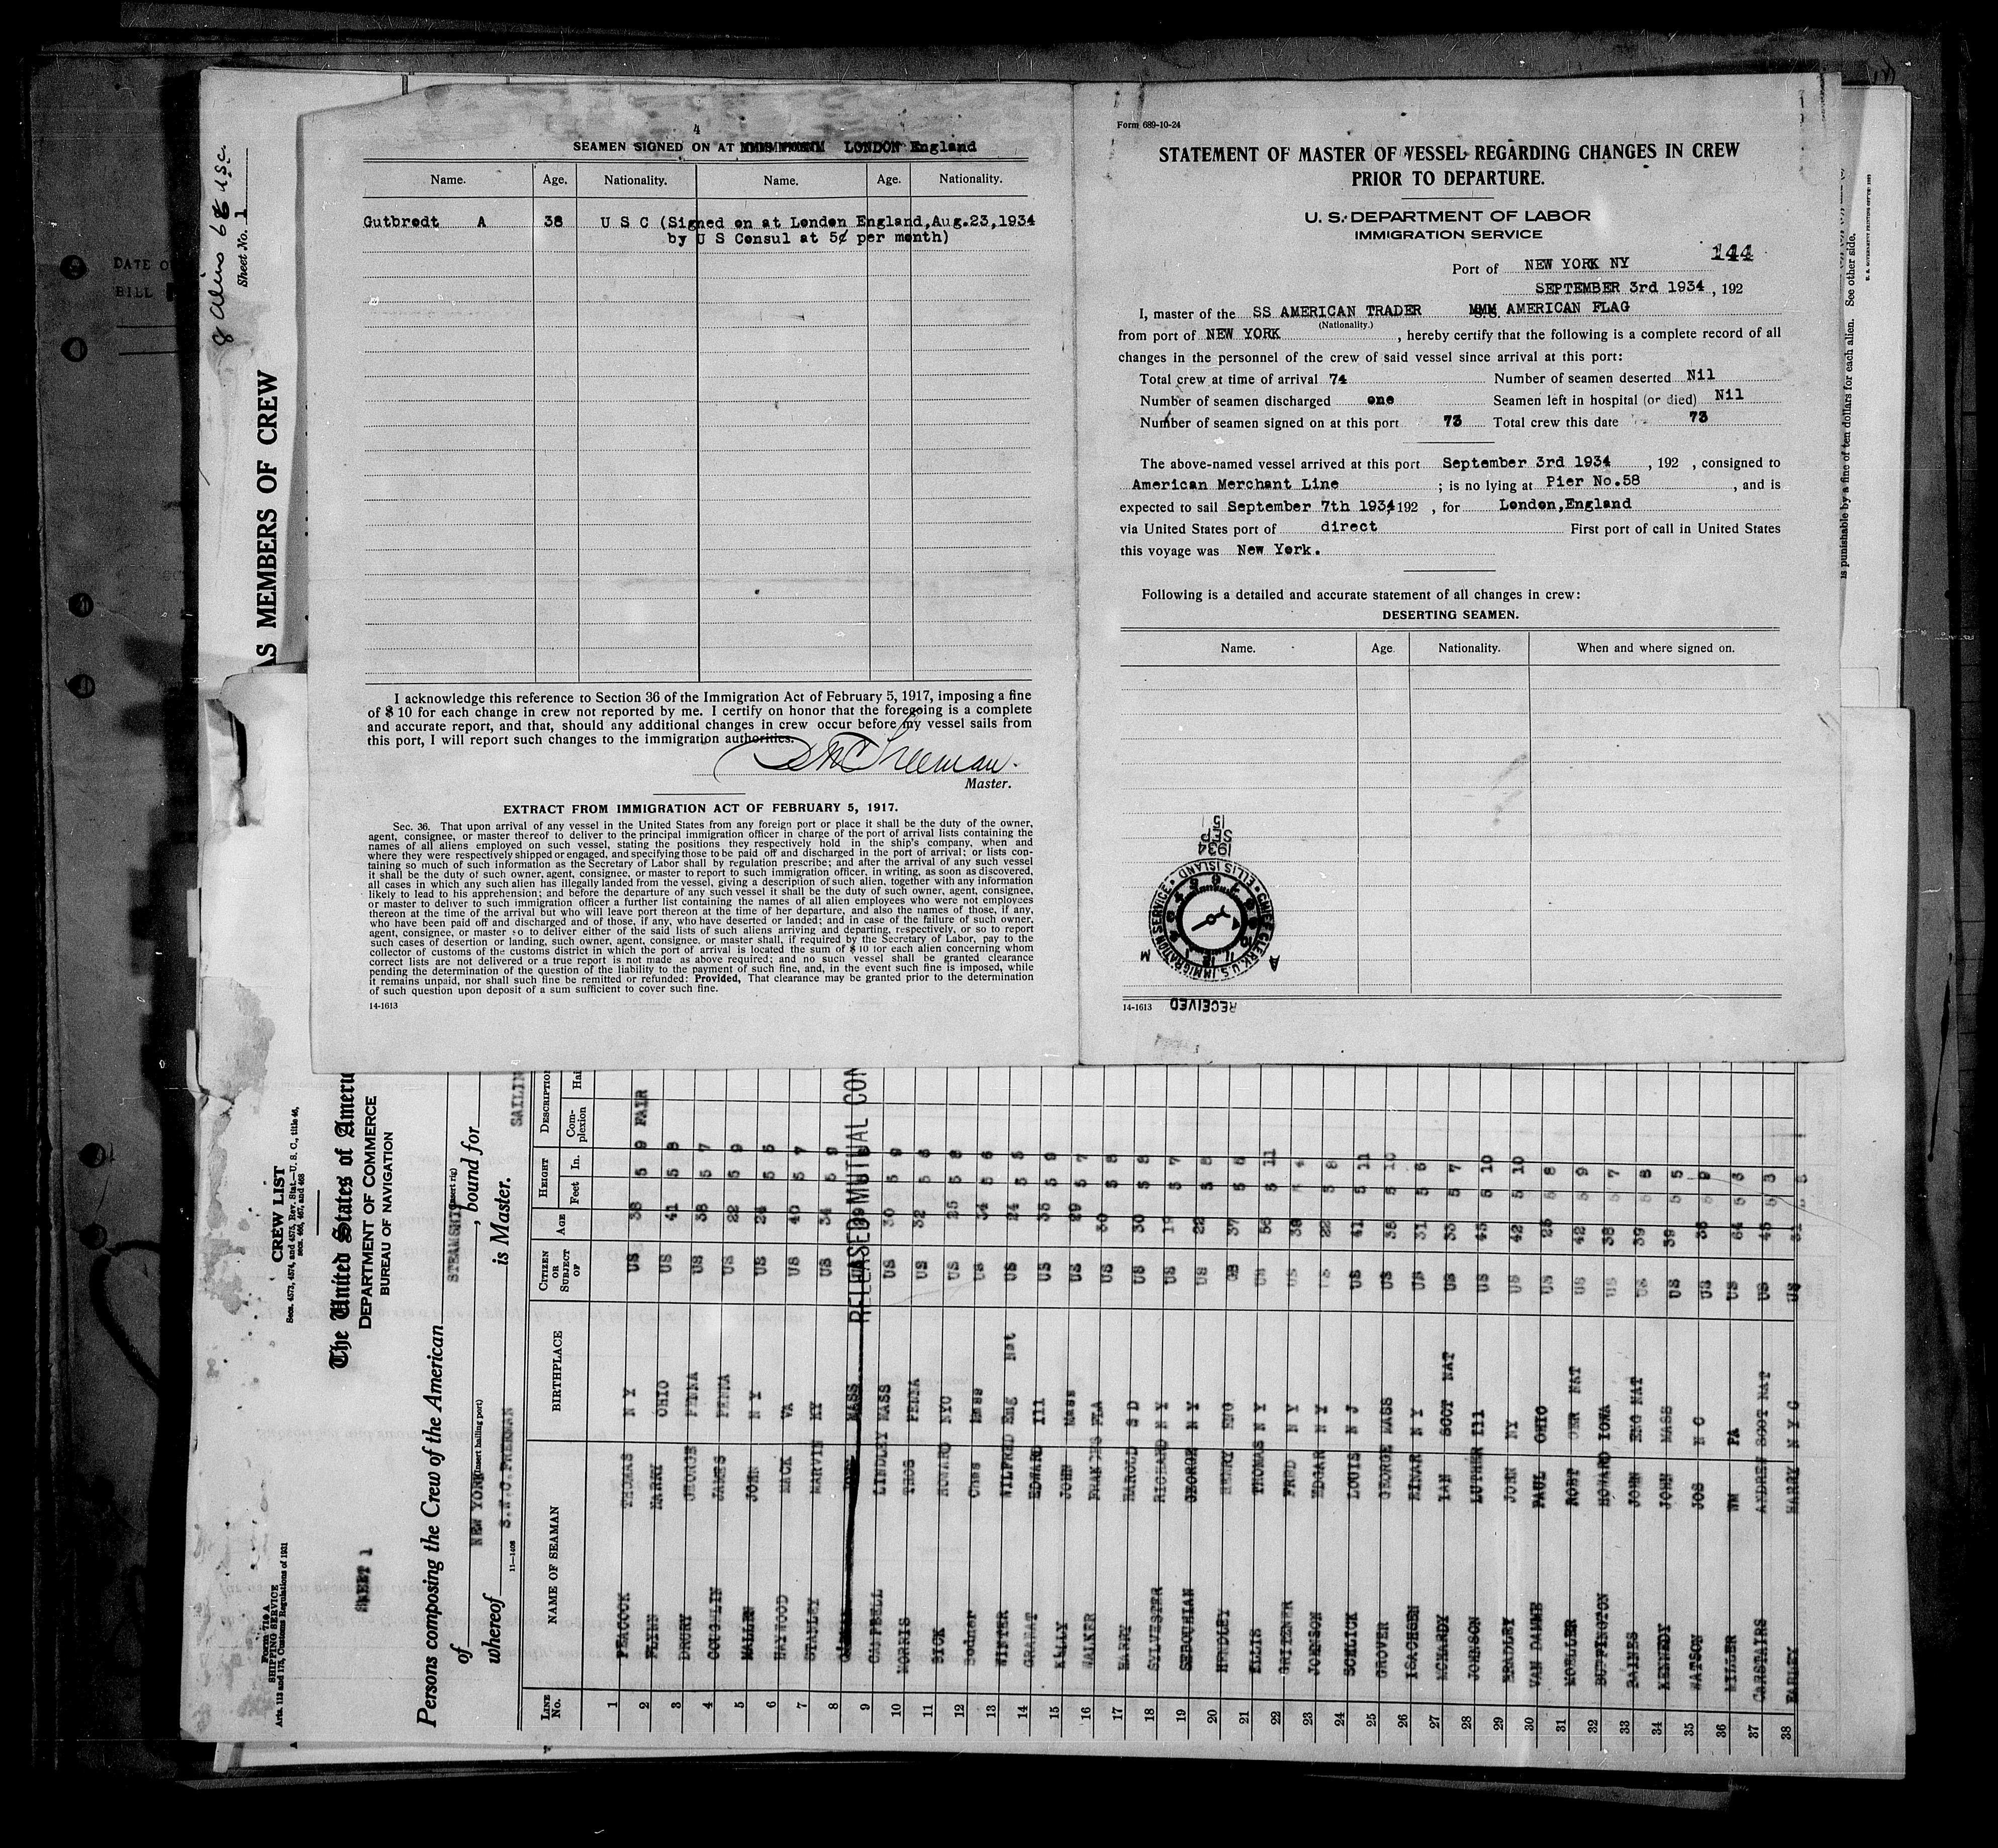 4
SEAMEN SIGNED ON AT LONDON England
Name. Age. Nationality. Name. Age. Nationality.
Gutbrodt A 38 U S C (Signed on at London England,Aug.23,1934
by U S Consul at 5¢ per month)
I acknowledge this reference to Section 36 of the Immigration Act of February 5, 1917, imposing a fine
of $10 for each change in crew not reported by me. I certify on honor that the foregoing is a complete
and accurate report, and that, should any additional changes in crew occur before my vessel sails from
this port, I will report such changes to the immigration authorities.
Master.
EXTRACT FROM IMMIGRATION ACT OF FEBRUARY 5, 1917.
Sec. 36. That upon arrival of any vessel in the United States from any foreign port or place it shall be the duty of the owner,
agent, consignee, or master thereof to deliver to the principal immigration officer in charge of the port of arrival lists containing the
names of all aliens employed on such vessel, stating the positions they respectively hold in the ship's company, when and
where they were respectively shipped or engaged, and specifying those to be paid off and discharged in the port of arrival; or lists con-
taining so much of such information as the Secretary of Labor shall by regulation prescribe; and after the arrival of any such vessel
it shall be the duty of such owner, agent, consignee, or master to report to such immigration officer, in writing, as soon as discovered,
all cases in which any such alien has illegally landed from the vessel, giving a description of such alien, together with any information
likely to lead to his apprehension; and before the departure of any such vessel it shall be the duty of such owner, agent, consignee,
or master to deliver to such immigration officer a further list containing the names of all alien employees who were not employees
thereon at the time of the arrival but who will leave port thereon at the time of her departure, and also the names of those, if any,
who have been paid off and discharged and of those, if any, who have deserted or landed; and in case of the failure of such owner,
agent, consignee, or master so to deliver either of the said lists of such aliens arriving and departing, respectively, or so to report
such cases of desertion or landing, such owner, agent, consignee, or master shall, if required by the Secretary of Labor, pay to the
collector of customs of the customs district in which the port of arrival is located the sum of $10 for each alien concerning whom
correct lists are not delivered or a true report is not made as above required; and no such vessel shall be granted clearance
pending the determination of the question of the liability to the payment of such fine, and, in the event such fine is imposed, while
it remains unpaid, nor shall such fine be remitted or refunded: Provided, That clearance may be granted prior to the determination
of such question upon deposit of a sum sufficient to cover such fine.
14-1613
Form 689-10-24
STATEMENT OF MASTER OF VESSEL REGARDING CHANGES IN CREW
PRIOR TO DEPARTURE.
U. S. DEPARTMENT OF LABOR
IMMIGRATION SERVICE
144
Port of NEW YORK NY
SEPTEMBER 3rd 1934, 192
I, master of the SS AMERICAN TRADER AMERICAN FLAG
(Nationality.)
from port of NEW YORK, hereby certify that the following is a complete record of all
changes in the personnel of the crew of said vessel since arrival at this port:
Total crew at time of arrival 74 Number of seamen deserted Nil
Number of seamen discharged one Seamen left in hospital (or died) Nil
Number of seamen signed on at this port 73 Total crew this date 73
The above-named vessel arrived at this port September 3rd 1934, 192 , consigned to
American Merchant Line ; is no lying at Pier No.58 , and is
expected to sail September 7th 1934, 192 , for London,England
via United States port of direct First port of call in United States
this voyage was New York.
Following is a detailed and accurate statement of all changes in crew:
DESERTING SEAMEN.
Name. Age. Nationality. When and where signed on.
1934 SEP 5
CHIEF CLERK, U.S. IMMIGRATION SERVICE • ELLIS ISLAND •
A M
RECEIVED
14-1613
is punishable by a fine of ten dollars for each alien. See other side.
DATE O
BILL
Sheet No. 1
8 Aliens
AS MEMBERS OF CREW
Form 710 A
SHIPPING SERVICE
Arts. 113 and 175, Customs Regulations of 1931
SHEET 1
CREW LIST
Secs. 4573, 4574, and 4575, Rev. Stat.—U. S. C., title 46,
secs. 464, 466, 467, and 468
The United States of Americ
DEPARTMENT OF COMMERCE
BUREAU OF NAVIGATION
Persons composing the Crew of the American STEAMSHIP (Insert rig)
of NEW YORK (Insert hailing port), bound for
whereof is Master.
11—1406
SAILIN
LINE No. NAME OF SEAMAN BIRTHPLACE CITIZEN OR SUBJECT OF AGE HEIGHT Feet In. DESCRIPTION Com-plexion Hai
1 PEACOCK THOMAS N Y US 38 5 9 FAIR
2 FLYNN HARRY OHIO US 41 5 8
3 DRURY GEORGE PENNA US 38 5 7
4 COUGHLIN JAMES PENNA US 22 5 9
5 MALLEN JOHN N Y US 24 5 5
6 HAYWOOD MACK VA US 40 5 7
7 STANLEY MARVIN KY US 34 5 9
8 MASS RELEASED MUTUAL CON
9 CAMPBELL LINDLEY MASS US 30 5 9
10 MORRIS THOS PENNA US 32 5 8
11 SICK HOWARD NYC US 25 5 8
12 Chas Mass US 34 5 6
13 WINTER WILFRED Eng Nat US 24 5 5
14 GRANAT EDWARD Ill US 35 5 9
15 KELLY JOHN Mass US 29 5 7
16 WALKER FRANCIS FLA US 30 5 8
17 HARRY HAROLD S D US 30 5 8
18 SYLVESTER RICHARD N Y US 19 5 7
19 SEBOUHIAN GEORGE N Y US 22 5 8
20 HENDLEY HENRY ENG GB 37 5 8
21 ELLIS THOMAS N Y US 56 5 11
22 GRITZNER FRED N Y US 39
23 JOHNSON EDGAR N Y US 22 5 8
24 SCHLICK LOUIS N J US 41 5 11
25 GROVER GEORGE MASS US 38 5 10
26 ISACHSEN EINAR N Y US 31 5 6
27 MCHARDY IAN SCOT NAT US 33 5 7
28 JOHNSON LUTHER Ill US 45 5 10
29 BRADLEY JOHN NY US 42 5 10
30 VAN DAMME PAUL OHIO US 25 5 8
31 MOELLER ROBT GER NAT US 42 5 9
32 BUFFINGTON HOWARD IOWA US 38 5 7
33 RAINES JOHN ENG NAT US 39 5 8
34 KENNEDY JOHN MASS US 39 5 5
35 WATSON JOS N C US 38 5 9
36 MILLER WM PA US 64 5 3
37 CARSTAIRS ANDREW SCOT NAT US 45 5 3
38 FARLEY HARRY N Y C US